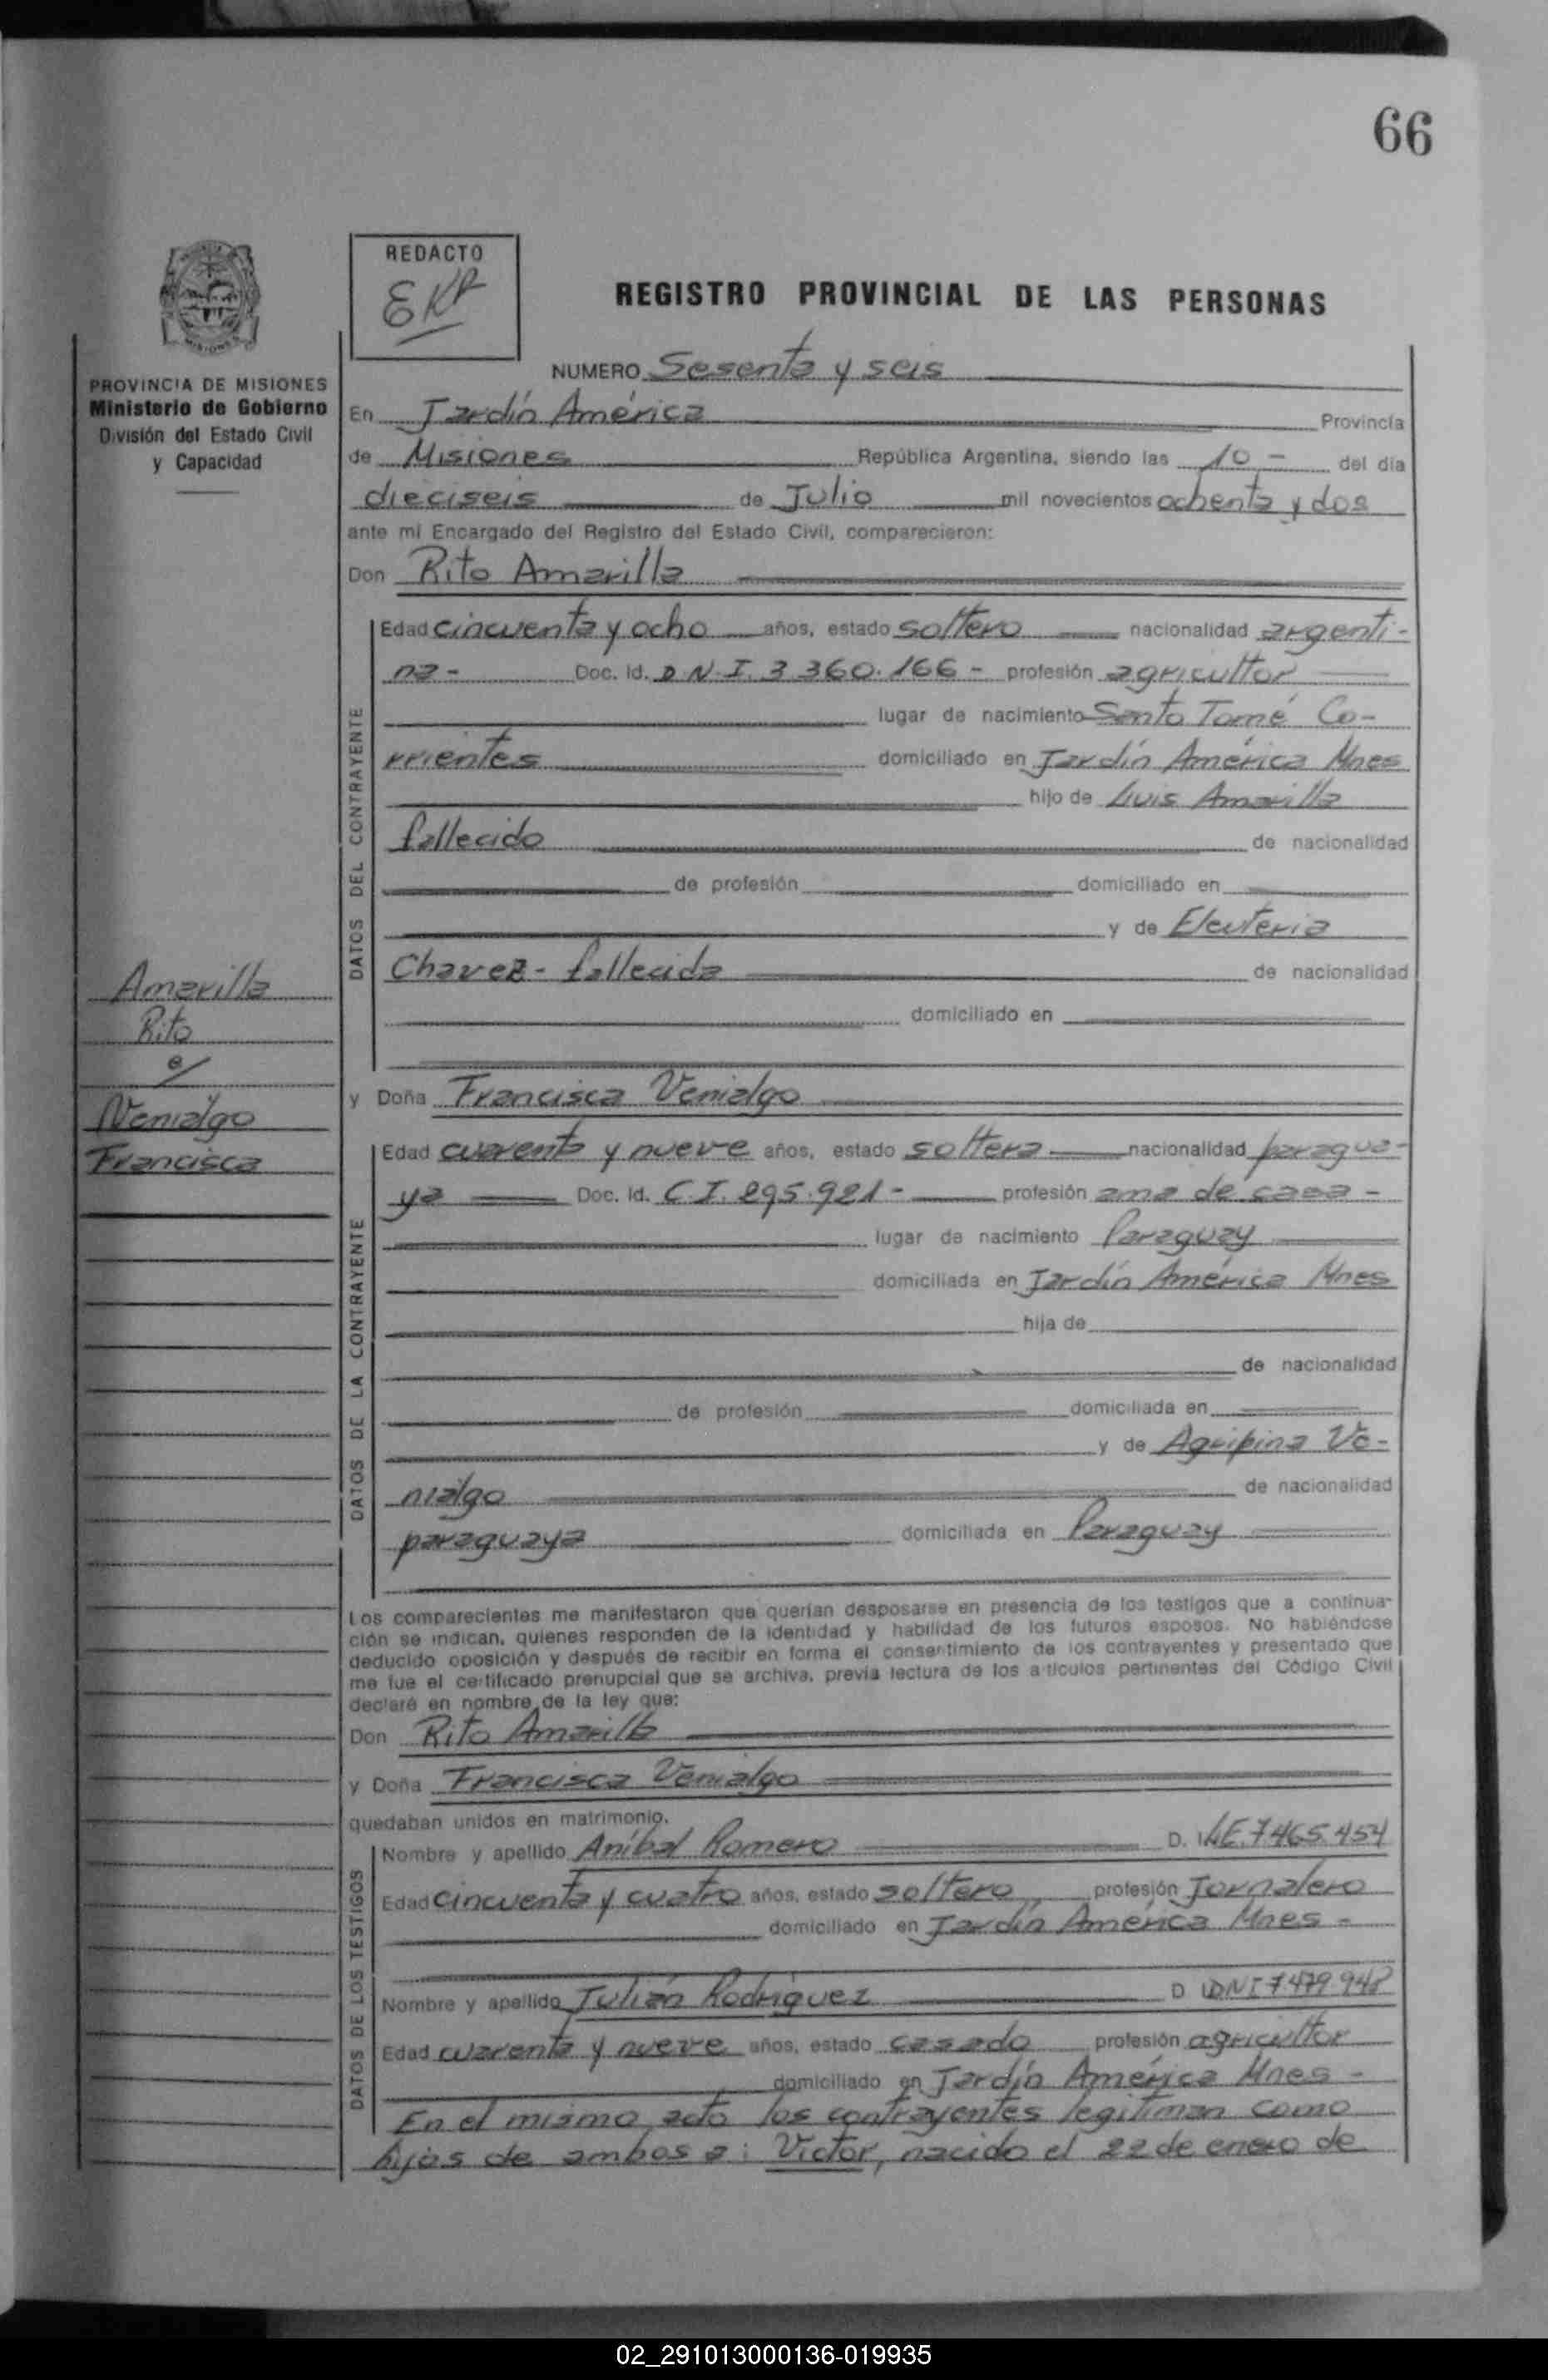 66
REDACTO
EKA
REGISTRO PROVINCIAL DE LAS PERSONAS
MISIONES
PROVINCIA DE MISIONES
Ministerio de Gobierno
División del Estado Civil
y Capacidad
Amarilla
Rito
c/
Venialgo
Francisca
NUMERO Sesenta y seis
En Jardín América Provincia
de Misiones República Argentina, siendo las 10 - del día
dieciseis de Julio mil novecientos ochenta y dos
ante mí Encargado del Registro del Estado Civil, comparecieron:
Don Rito Amarilla
DATOS DEL CONTRAYENTE
Edad cincuenta y ocho años, estado soltero nacionalidad argenti-
na- Doc. Id. D.N.I. 3.360.166 - profesión agricultor
lugar de nacimiento Santo Tomé Co-
rrientes domiciliado en Jardín América Mnes
hijo de Luis Amarilla
fallecido de nacionalidad
de profesión domiciliado en
y de Eleuteria
Chavez - fallecida de nacionalidad
domiciliado en
y Doña Francisca Venialgo
DATOS DE LA CONTRAYENTE
Edad cuarenta y nueve años, estado soltera nacionalidad paragua-
ya Doc. Id. C.I. 295.921 - profesión ama de casa -
lugar de nacimiento Paraguay
domiciliada en Jardín América Mnes
hija de
de nacionalidad
de profesión domiciliada en
y de Agripina Ve-
nialgo de nacionalidad
paraguaya domiciliada en Paraguay
Los comparecientes me manifestaron que querían desposarse en presencia de los testigos que a continua-
ción se indican, quienes responden de la identidad y habilidad de los futuros esposos. No habiéndose
deducido oposición y después de recibir en forma el consentimiento de los contrayentes y presentado que
me fue el certificado prenupcial que se archiva, previa lectura de los artículos pertinentes del Código Civil
declaré en nombre de la ley que:
Don Rito Amarilla
y Doña Francisca Venialgo
quedaban unidos en matrimonio.
DATOS DE LOS TESTIGOS
Nombre y apellido Aníbal Romero D. I. LE. 7.465.454
Edad cincuenta y cuatro años, estado soltero, profesión Jornalero
domiciliado en Jardín América Mnes -
Nombre y apellido Julián Rodriguez D I DNI 7.479.948
Edad cuarenta y nueve años, estado casado profesión agricultor
domiciliado en Jardín América Mnes -
En el mismo acto los contrayentes legitiman como
hijos de ambos a: Victor, nacido el 22 de enero de
02_291013000136-019935